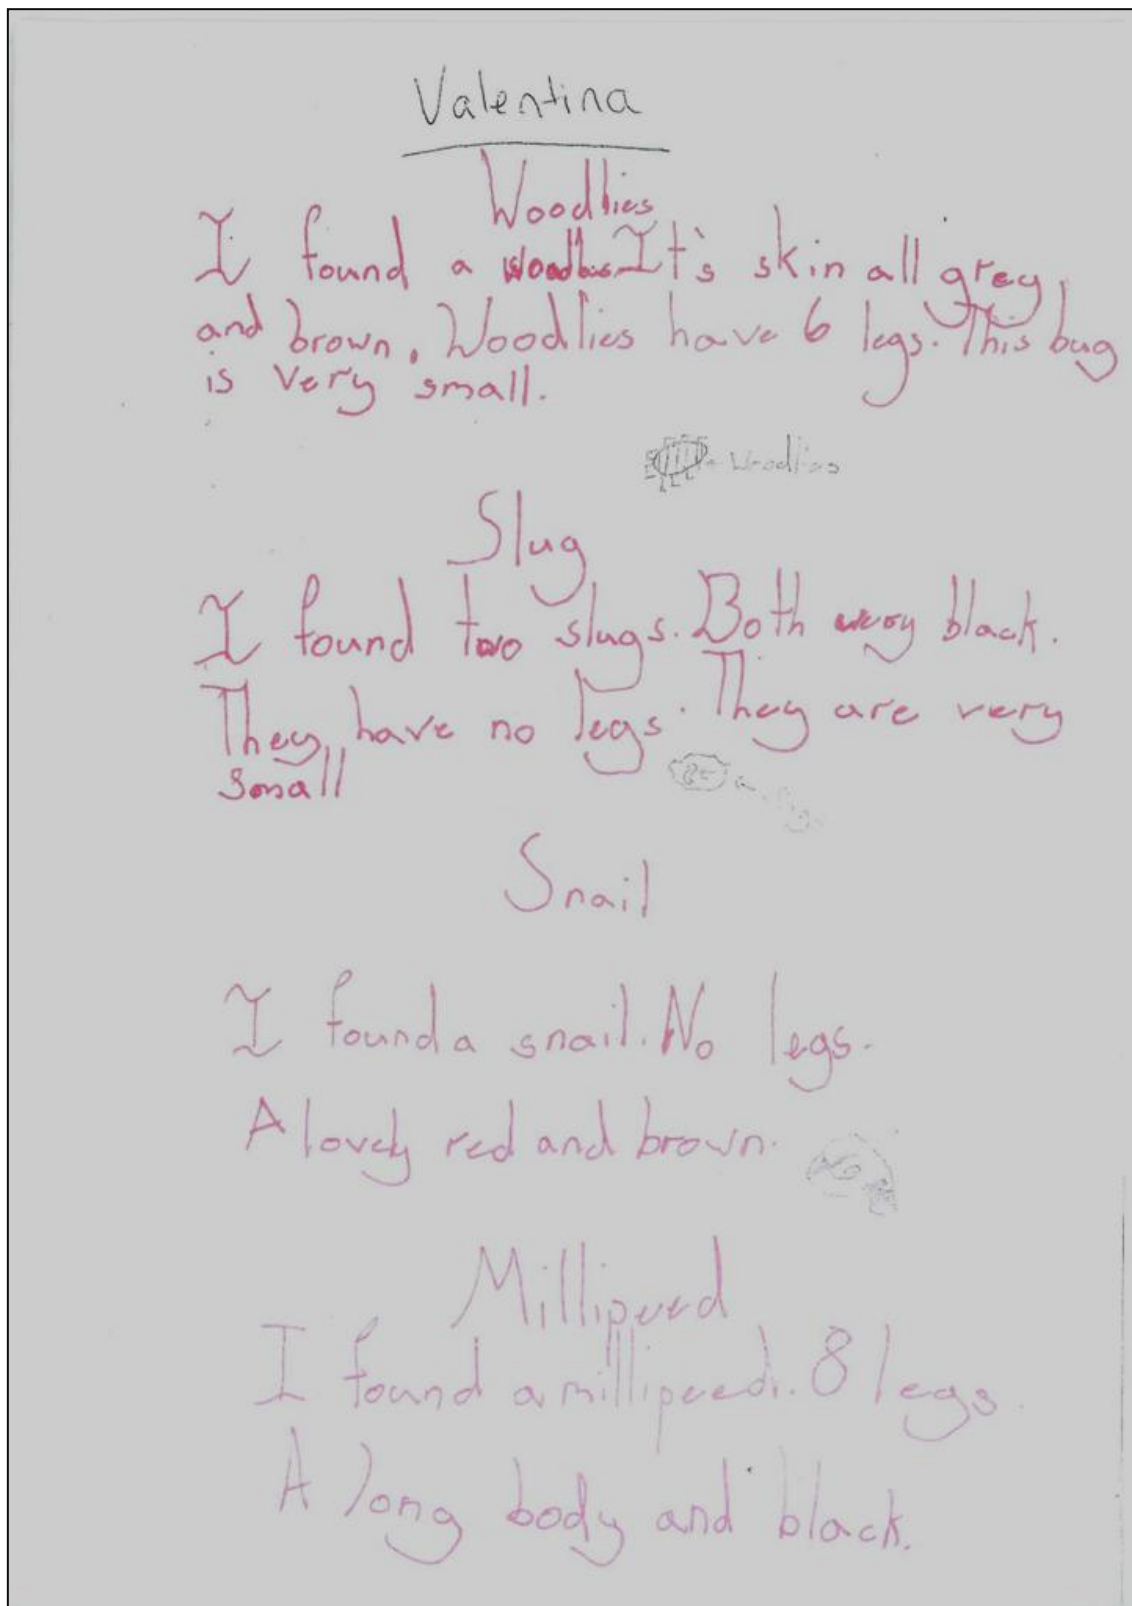 Valentina
Woodlies
I found a woodlies It's skin all grey
and brown. Woodlies have 6 legs. This bug
is very small.
Woodlies
Slug
I found two slugs. Both very black.
They have no legs. They are very
small
Snail
I found a snail. No legs.
A lovely red and brown.
Millipeed
I found a millipeed. 8 legs.
A long body and black.